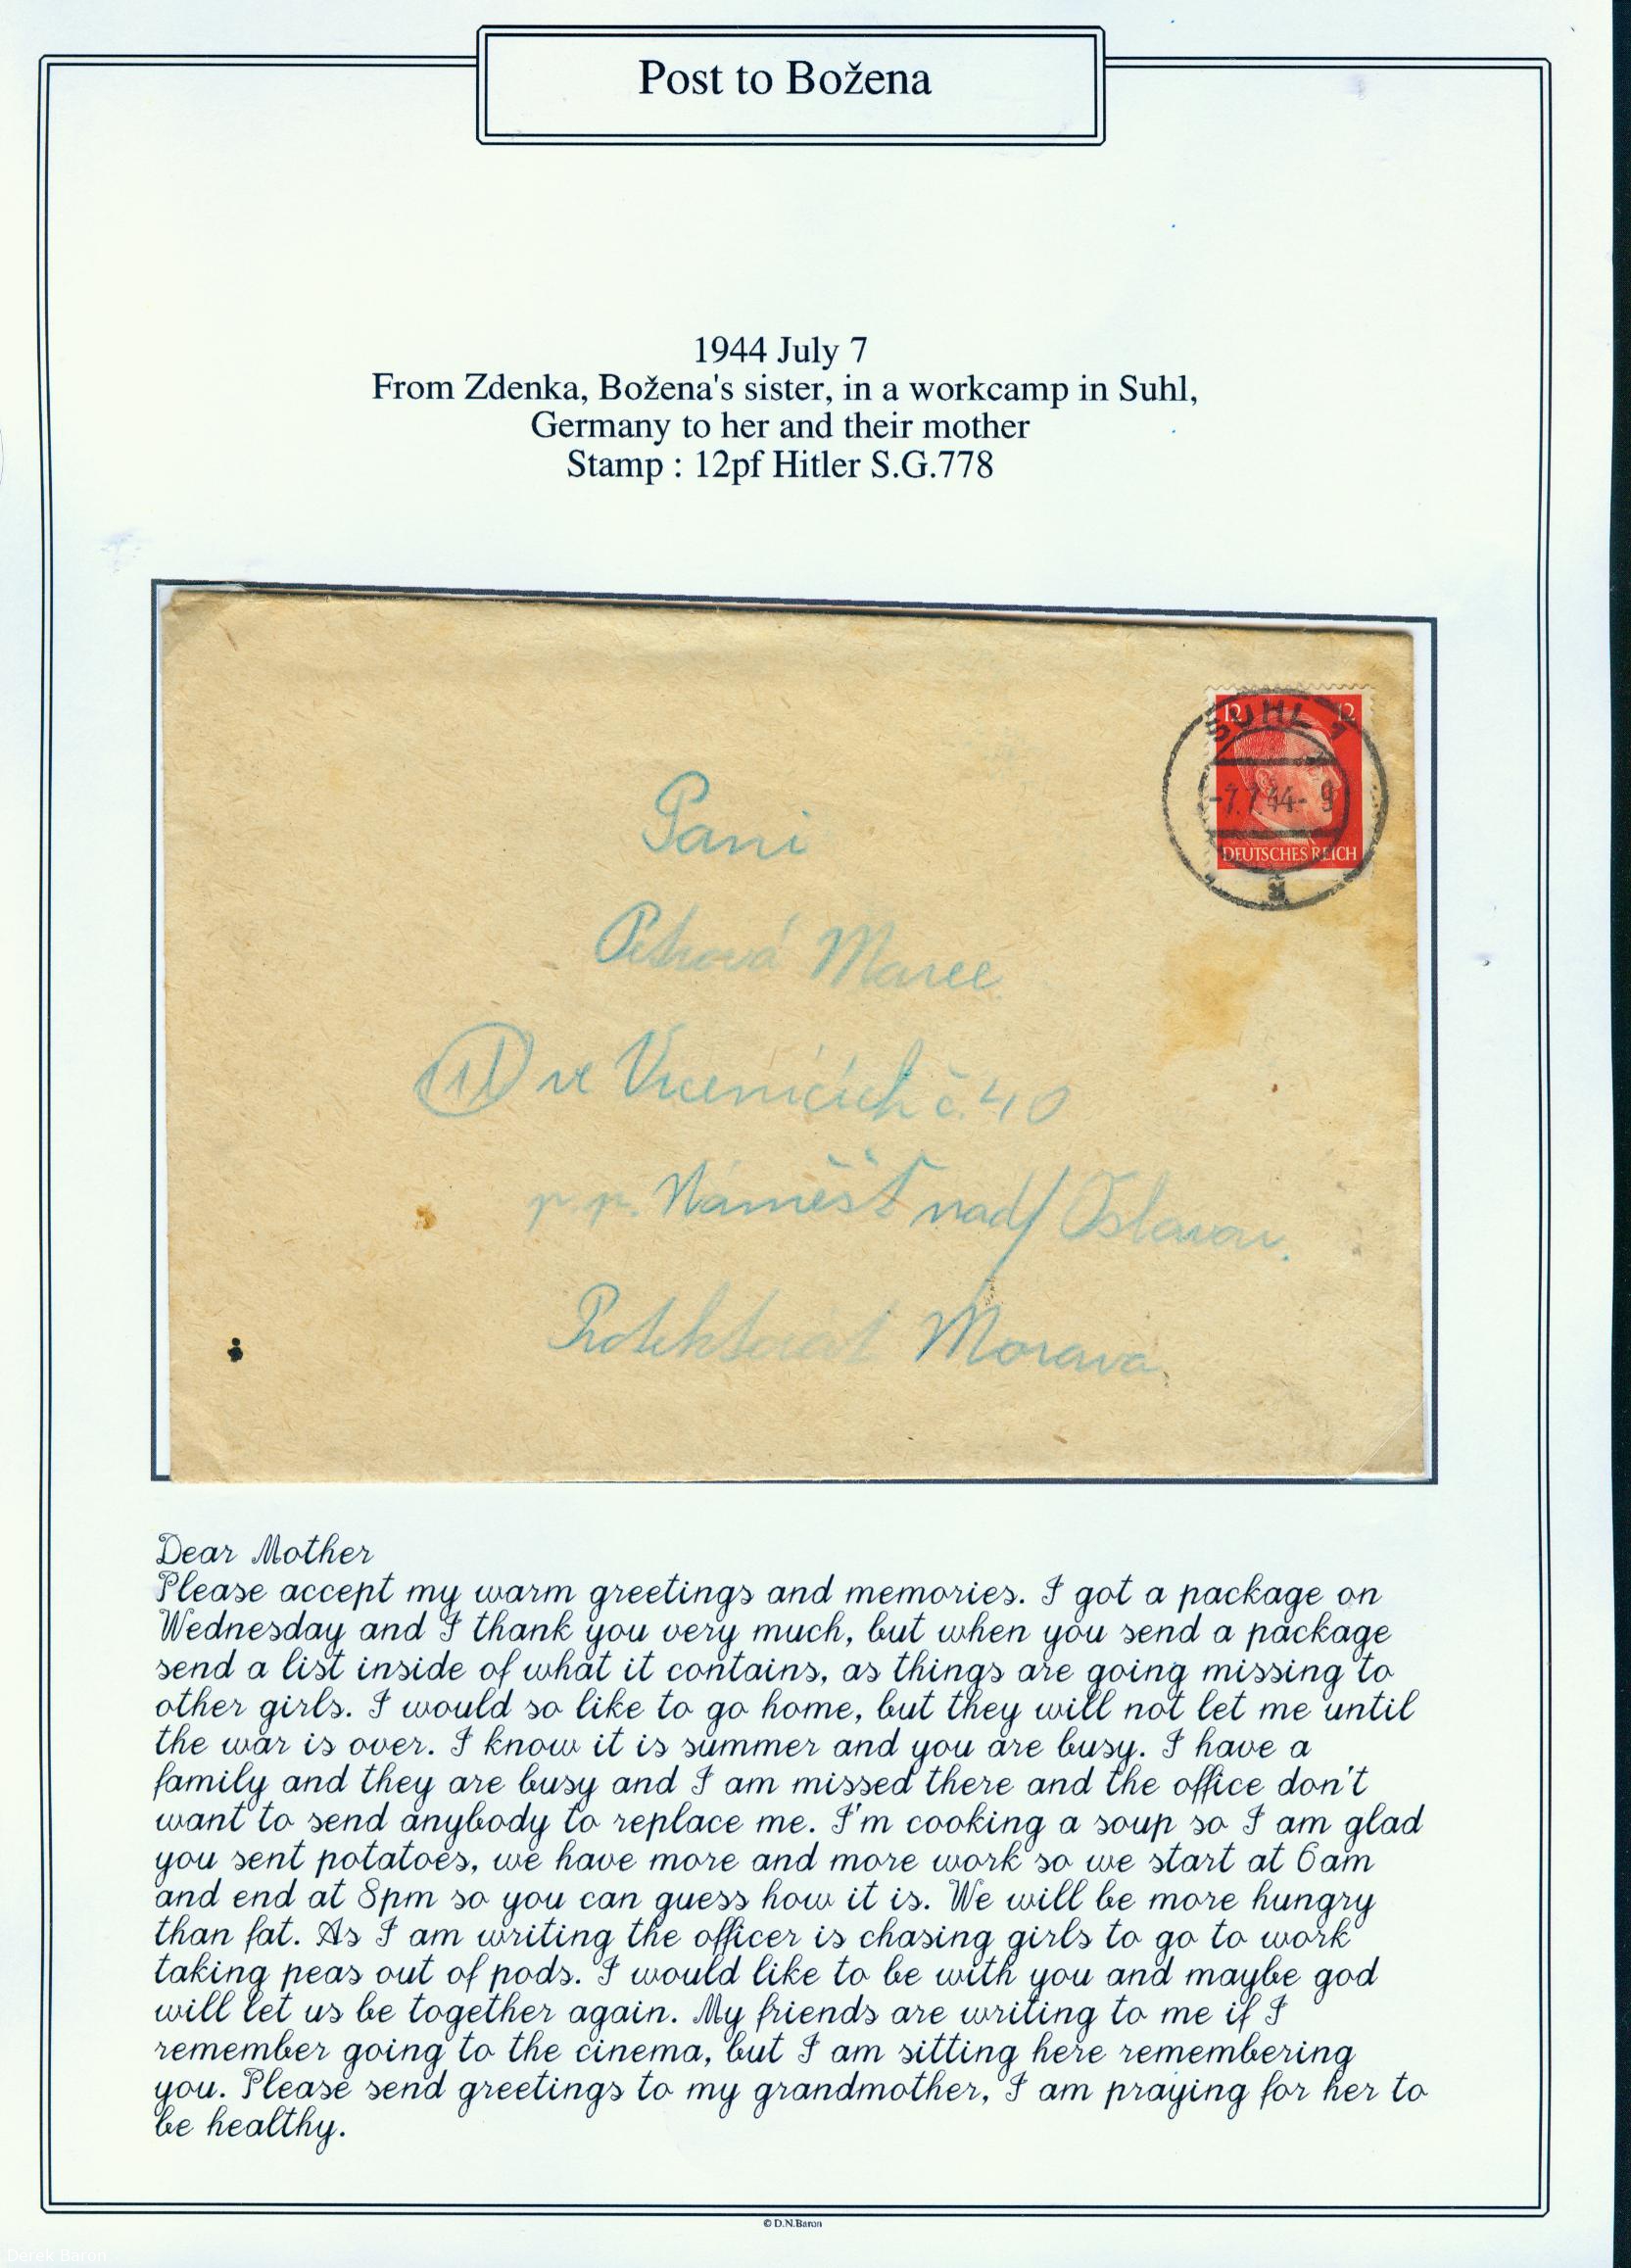 Post to Božena
1944 July 7
From Zdenka, Božena's sister, in a workcamp in Suhl,
Germany to her and their mother
Stamp : 12pf Hitler S.G.778
12 12
SUHL 1
-7.7.44- 9
DEUTSCHES REICH
Paní
Maree
ve č. 40
p. p. Náměšť nad/ Oslavou.
Protektorát Morava.
Dear Mother
Please accept my warm greetings and memories. I got a package on
Wednesday and I thank you very much, but when you send a package
send a list inside of what it contains, as things are going missing to
other girls. I would so like to go home, but they will not let me until
the war is over. I know it is summer and you are busy. I have a
family and they are busy and I am missed there and the office don't
want to send anybody to replace me. I'm cooking a soup so I am glad
you sent potatoes, we have more and more work so we start at 6am
and end at 8pm so you can guess how it is. We will be more hungry
than fat. As I am writing the officer is chasing girls to go to work
taking peas out of pods. I would like to be with you and maybe god
will let us be together again. My friends are writing to me if I
remember going to the cinema, but I am sitting here remembering
you. Please send greetings to my grandmother, I am praying for her to
be healthy.
© D.N.Baron
Derek Baron